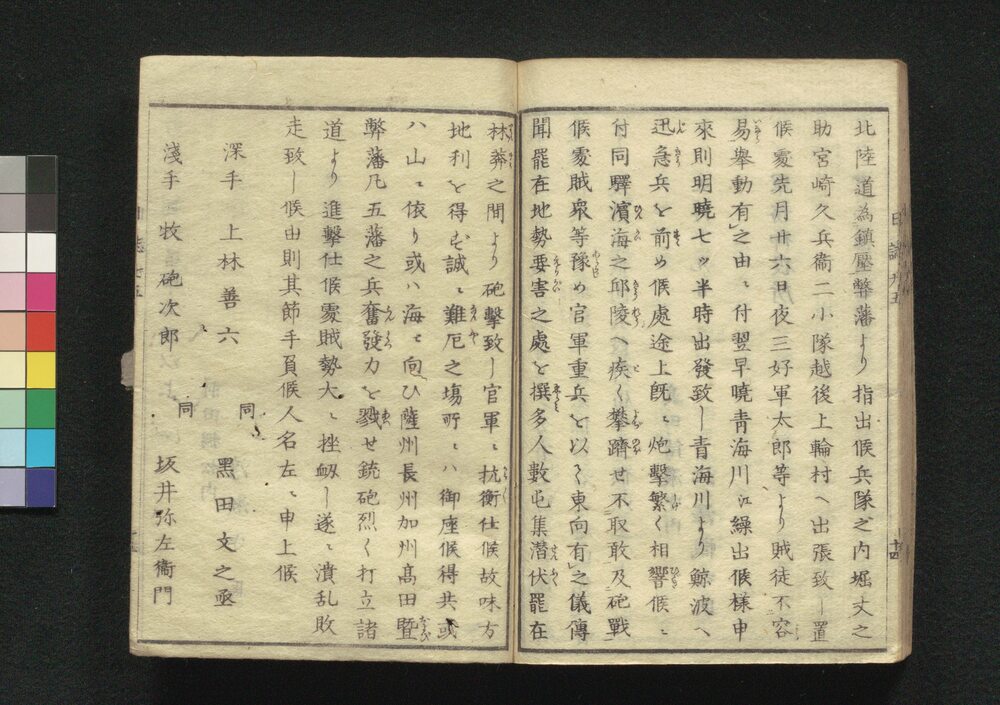 北陸道為鎮壓弊藩より指出候兵隊之内堀丈之
助宮崎久兵衞二小隊越後上輪村へ出張致し置
候處先月廿六日夜三好軍太郎等より賊徒不容
易舉動有之由ニ付翌早曉靑海川江繰出候樣申
來則明曉七ッ半時出發致し青海川より鯨波へ
迅急兵を前め候處途上既ニ炮擊繁く相響候ニ
付同驛濱海之邱陵へ疾く攀躋せ不取敢及砲戰
候處賊衆等豫め官軍重兵を以て東向有之儀傳
聞罷在地勢要害之處を撰多人數屯集潛伏罷在
林莽之間より砲擊致し官軍ニ抗衡仕候故味方
地利を得ず誠ニ難厄之塲所ニハ御座候得共或
ハ山ニ依り或ハ海ニ向ひ薩州長州加州高田暨
弊藩凡五藩之兵奮發力を戮せ銃砲烈く打立諸
道より進擊仕候處賊勢大ニ挫衂し遂ニ潰乱敗
走致し候由則其節手負候人名左ニ申上候
深手 上林善六 同 黑田文之丞
淺手 牧砲次郎 同 坂井弥左衞門
日誌 九五
十四